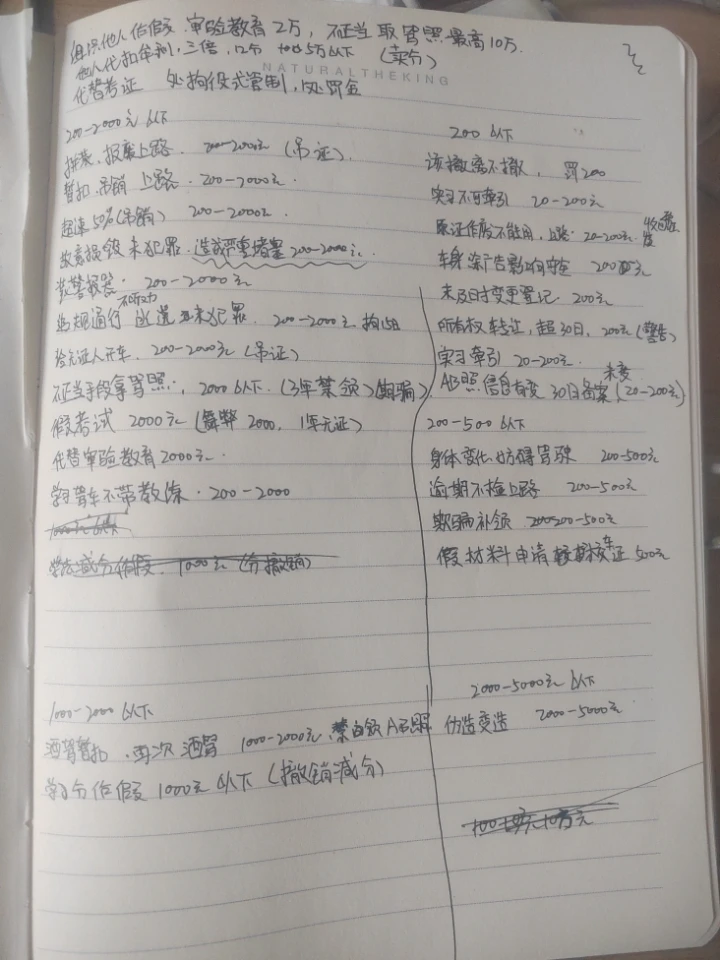 组织他人作假 审验教育2万, 不正当取驾照最高10万.
他人代扣牟利,三倍,12分 5万以下 (卖分)
NATURALTHEKING
代替考证 处拘役或管制,处罚金
200-2000元以下
拼装、报废上路. 200-2000元 (吊证).
暂扣、吊销 上路. 200-2000元.
超速50%(吊销) 200-2000元.
故意损毁 未犯罪. 造成严重堵塞 200-2000元.
装警报器. 200-2000元
违规通行 不听劝 未犯罪. 200-2000元 拘15日
给无证人开车. 200-2000元 (吊证)
不正当手段拿驾照. 2000以下. (3年禁领)
假考试 2000元 (舞弊2000, 1年无证)
代替审验教育2000元.
学习驾车不带教练. 200-2000
1000元以下
学法减分作假. 1000元 (分撤销)
1000-2000以下
酒驾暂扣. 再次酒驾 1000-2000元.
学习分作假1000元以下 (撤销减分)
200以下
该撤离不撤, 罚200
实习不可牵引 20-200元
原证作废不能用, 上路. 20-200元.
车身涂广告影响安全 200元
未及时变更登记. 200元
所有权转让, 超30日, 200元(警告)
实习牵引 20-200元.
AB照信息有变 30日备案 未变 (20-200元)
200-500以下
身体变化, 妨碍驾驶 200-500元
逾期不检上路 200-500元
欺骗补领 200-500元
假材料申请 车证 500元
2000-5000元以下
仿造变造 2000-5000元